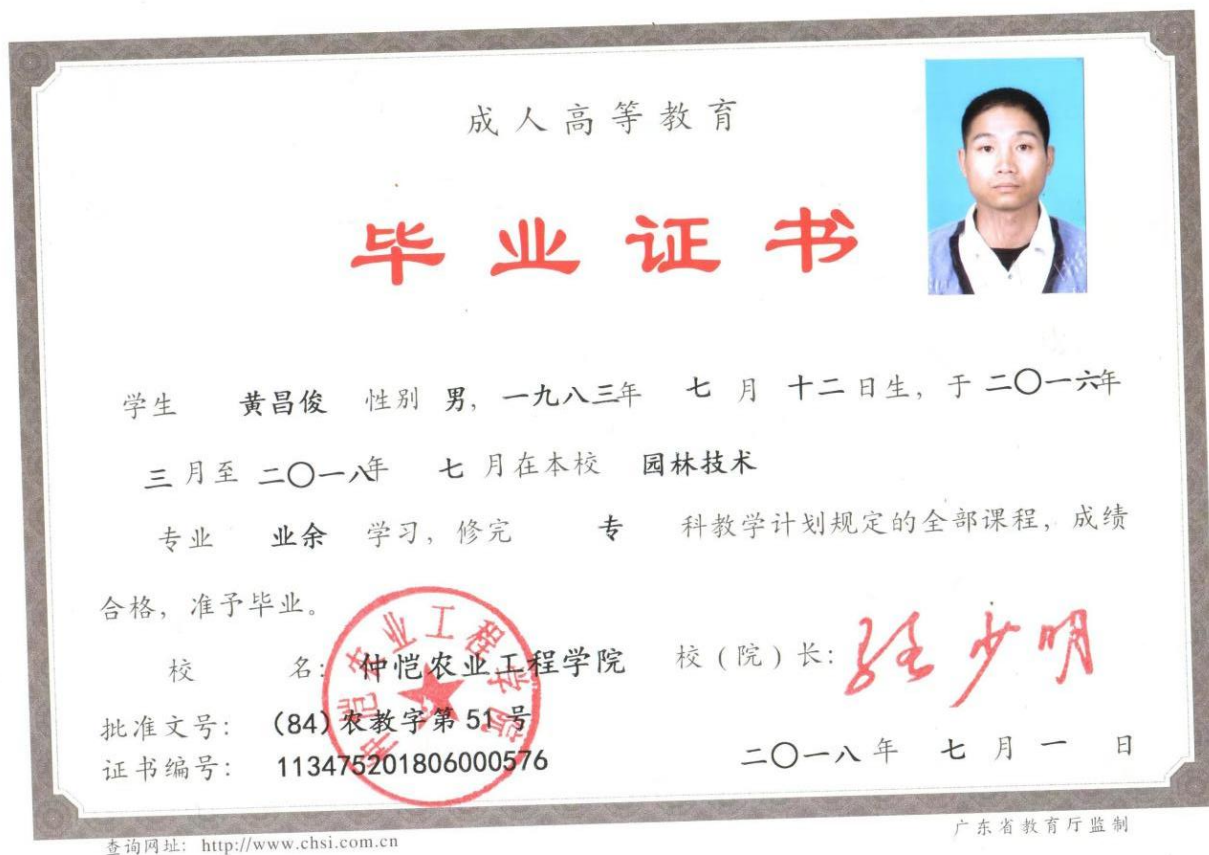 成人高等教育
毕业证书
学生 黄昌俊 性别 男，一九八三年 七 月 十二 日生，于 二〇一六年
三 月至 二〇一八年 七 月在本校 园林技术
专业 业余 学习，修完 专 科教学计划规定的全部课程，成绩
合格，准予毕业。
校 名：仲恺农业工程学院 校（院）长：
仲恺农业工程学院
批准文号： (84)农教字第 51 号
证书编号： 113475201806000576
二〇一八 年 七 月 一 日
查询网址：http://www.chsi.com.cn
广东省教育厅监制